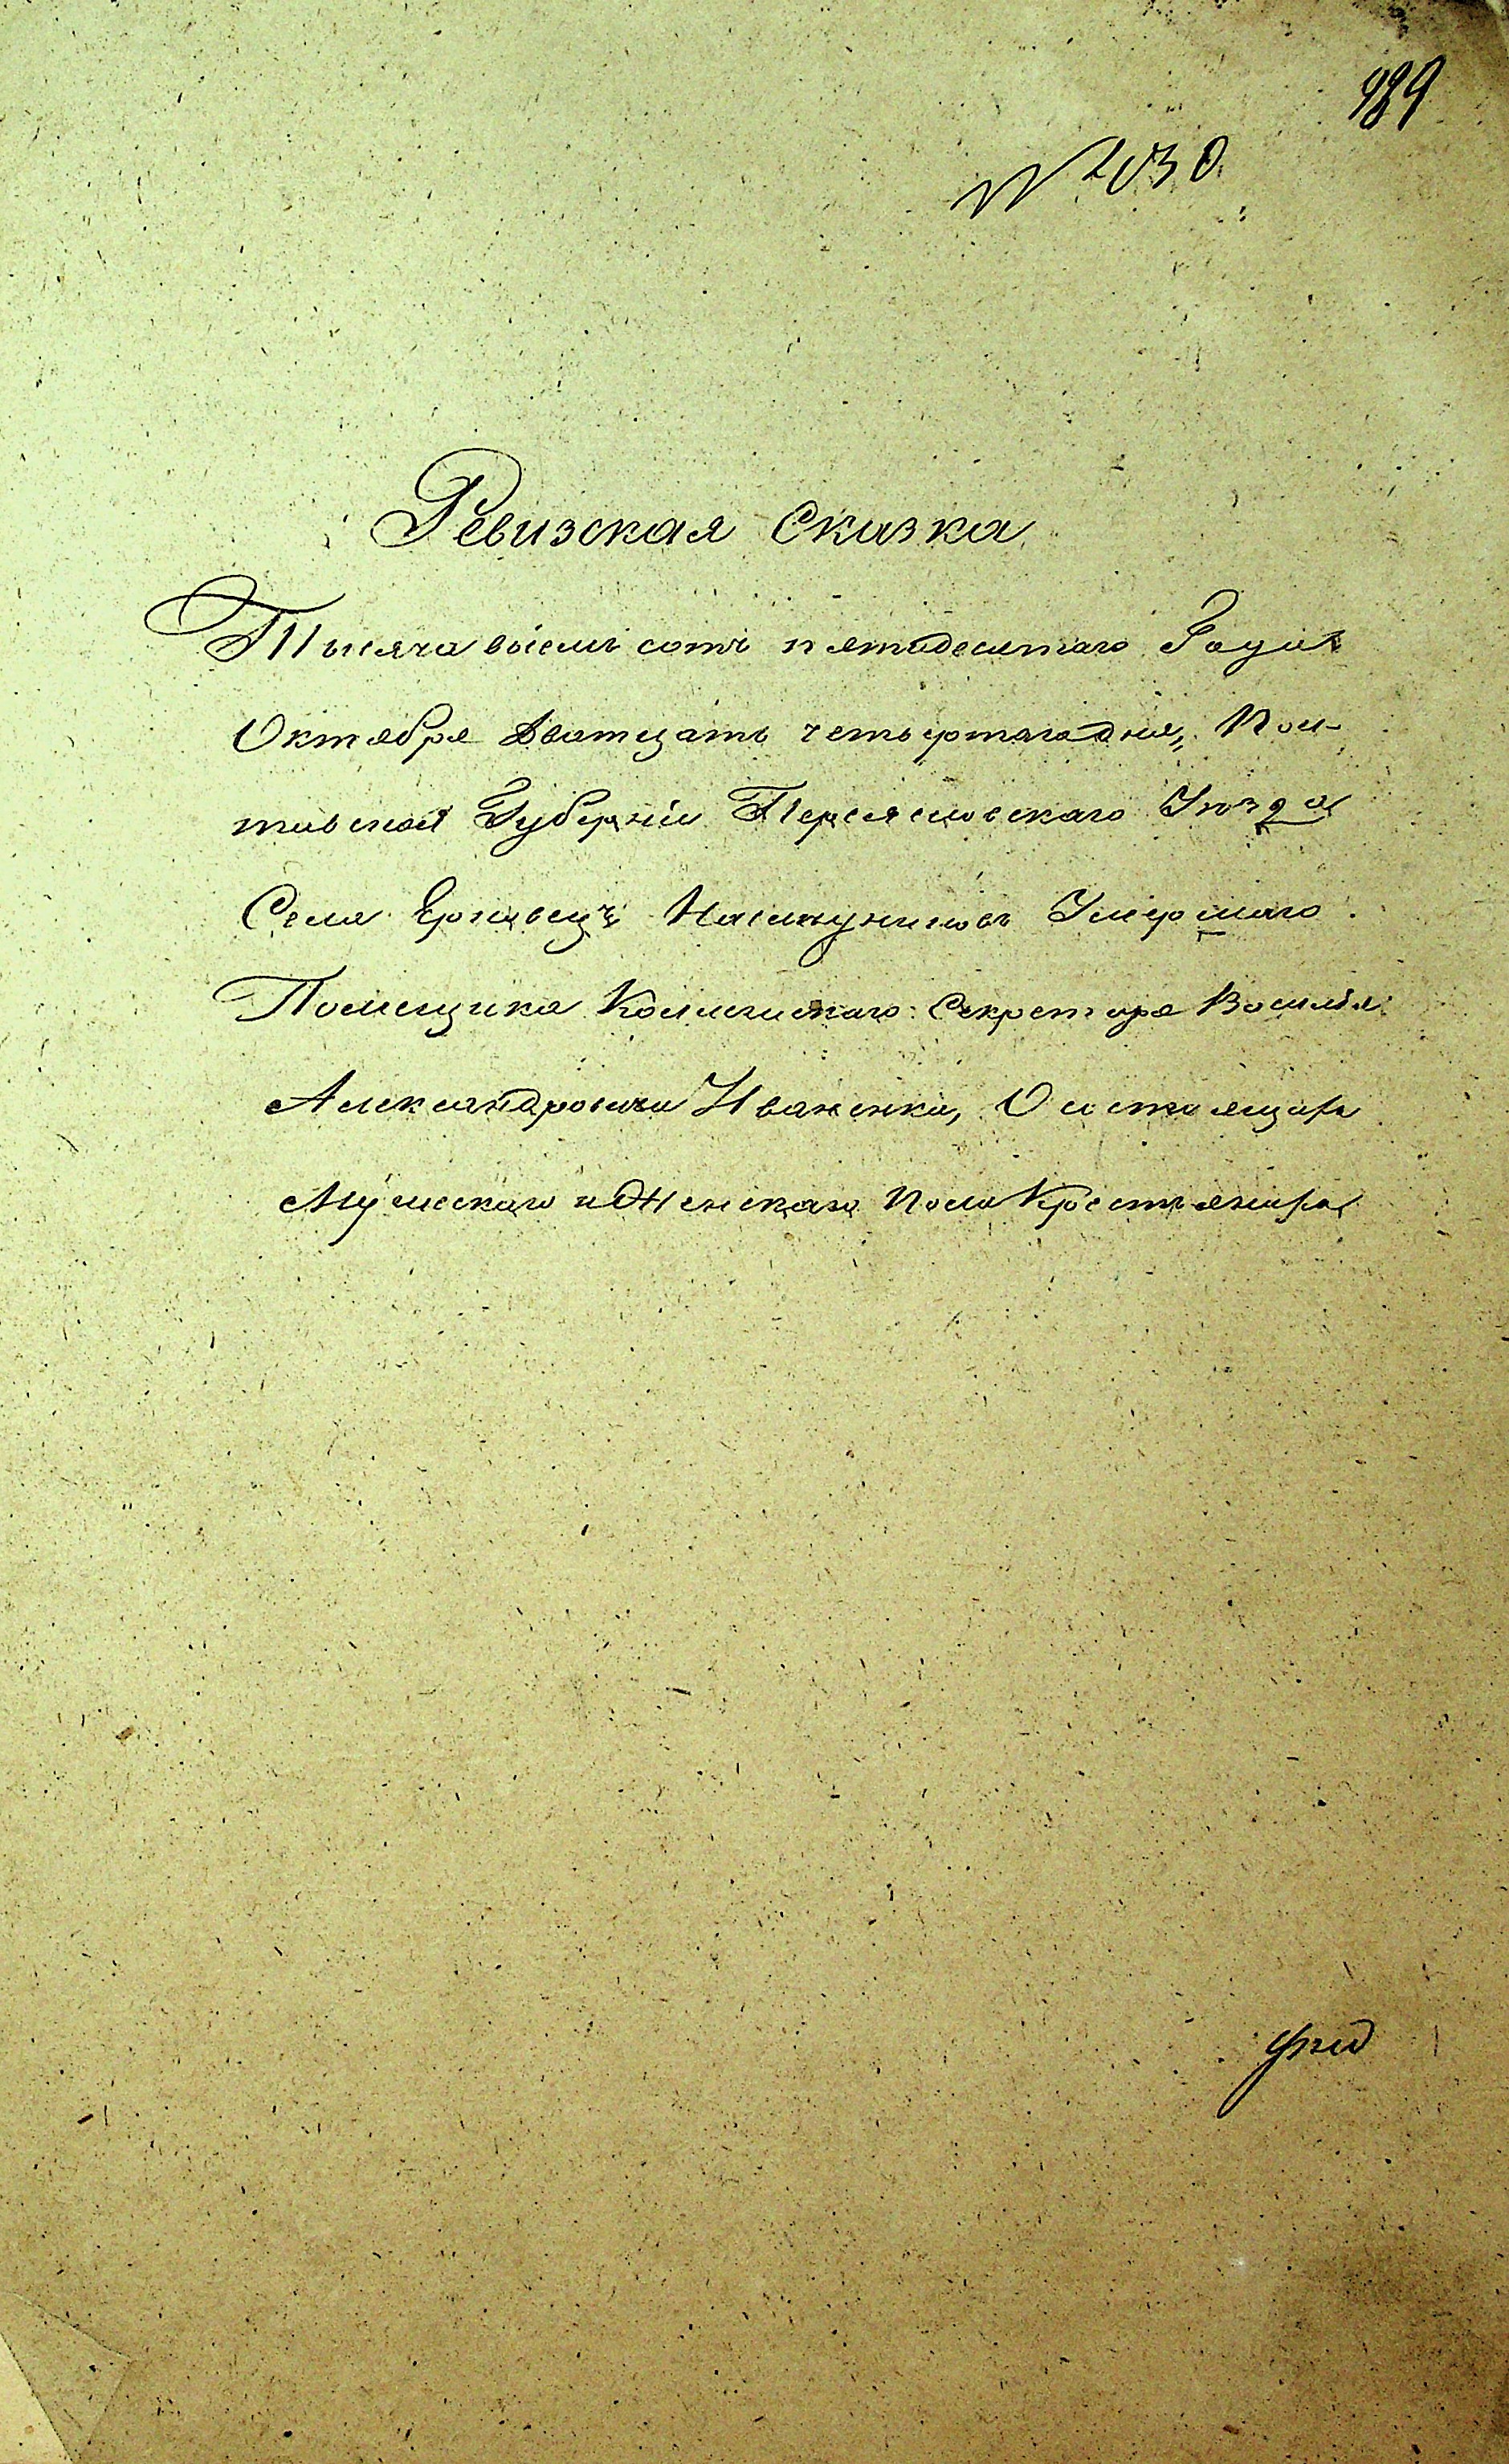 989
№ 1030
Ревизская Сказка
Тысяча восемь сотъ пятидесятаго Года
Октября Дватцать четвертаго дня, Пол-
тавской Губерніи Переяславскаго Уѣзда
Села Ерковецъ Наслѣдниковъ Умершаго
Помещика Колежскаго Секретаря Василія
Александровича Иваненка, О состоящихъ
Мужескаго и Женскаго пола Крестьянахъ